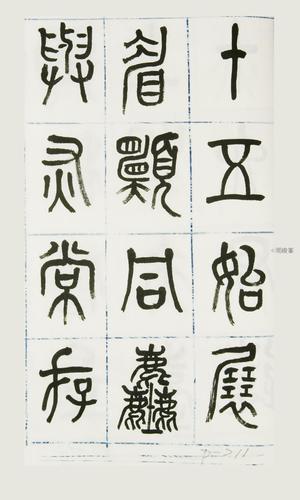 十五始展
眉願同塵
與灰常存